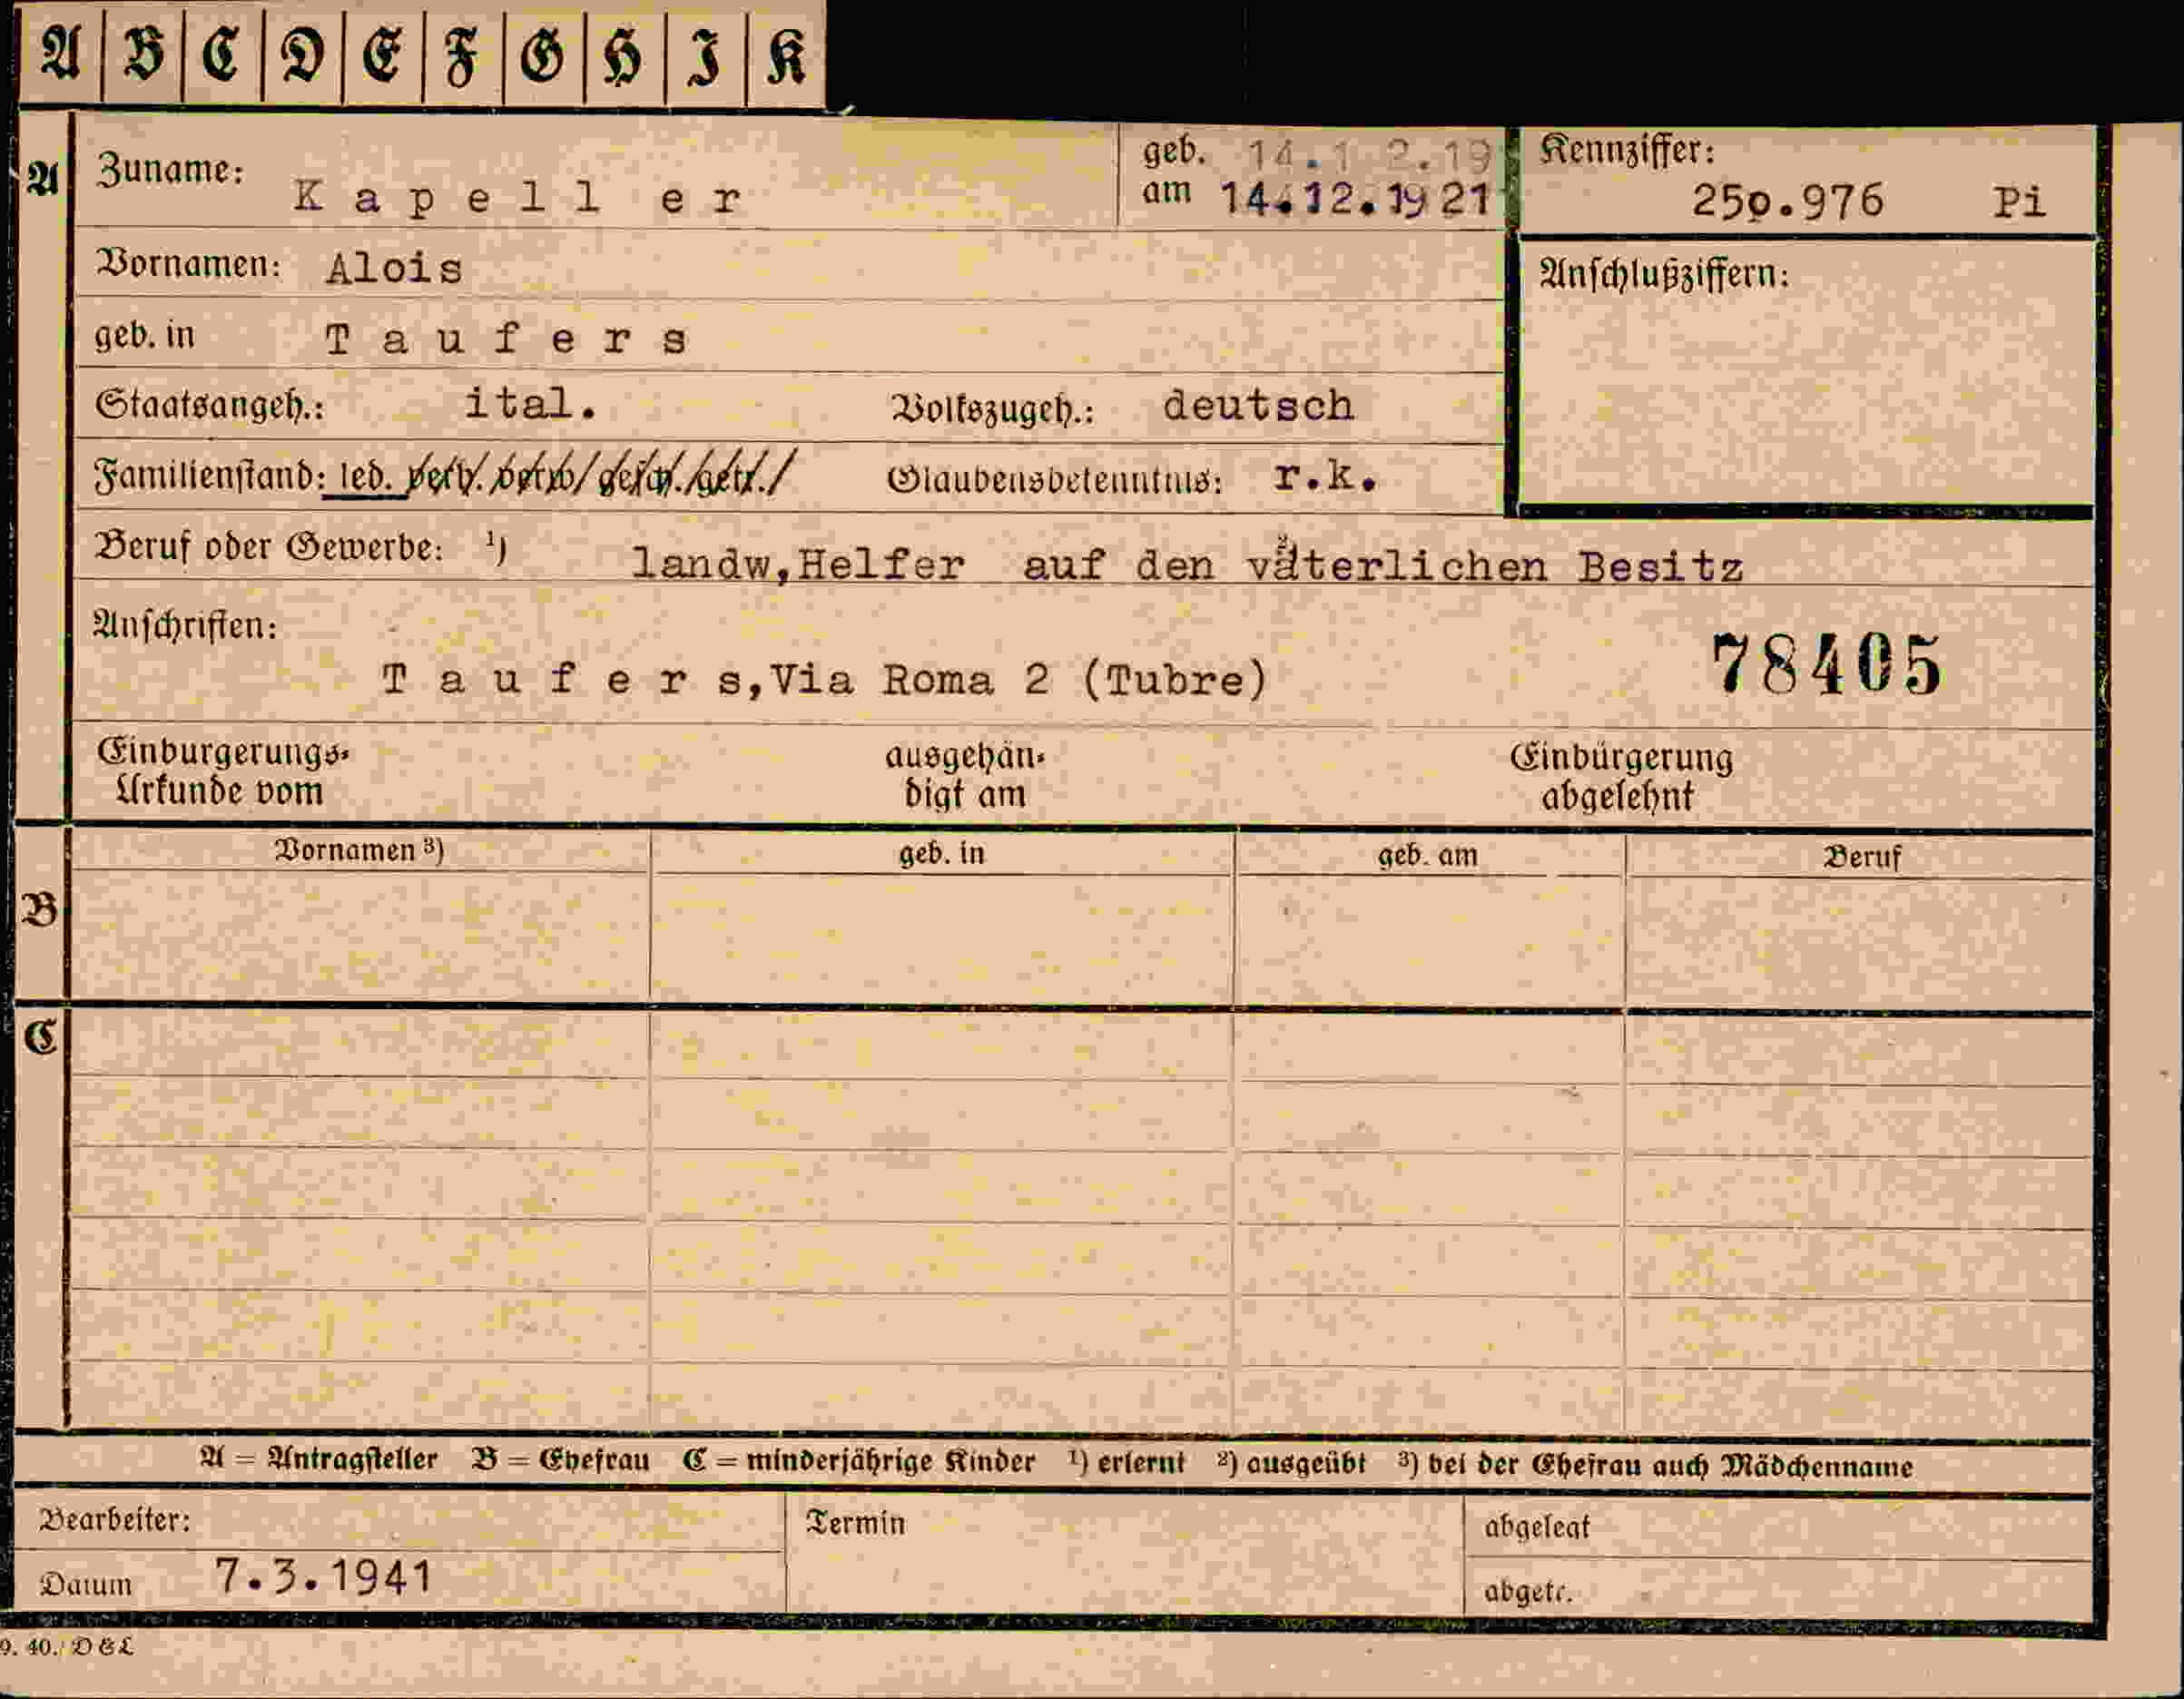 A B C D E F G H I K
A Zuname: Kapeller geb. am 14.1 2.19 14.12.1921 Kennziffer: 250.976 Pi
Vornamen: Alois Anschlußziffern:
geb. in Taufers
Staatsangeh.: ital. Volkszugeh.: deutsch
Familienstand: led. verh. verw. gesch. getr. Glaubensbekenntnis: r.k.
Beruf oder Gewerbe: ¹) landw,Helfer auf den väterlichen Besitz
Anschriften:
Taufers,Via Roma 2 (Tubre) 78405
Einbürgerungs- ausgehän- Einbürgerung
Urkunde vom digt am abgelehnt
Vornamen ³) geb. in geb. am Beruf
B
C
A = Antragsteller B = Ehefrau C = minderjährige Kinder ¹) erlernt ²) ausgeübt ³) bei der Ehefrau auch Mädchenname
Bearbeiter: Termin abgelegt
Datum 7.3.1941 abgetr.
9. 40. D & L